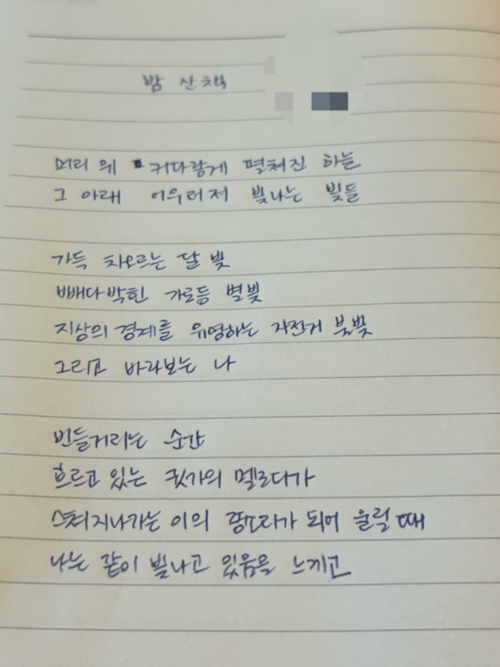 밤 산책
머리 위 커다랗게 펼쳐진 하늘
그 아래 어우러져 빛나는 빛들
가득 차오르는 달 빛
빼다박힌 가로등 별빛
지상의 경계를 유영하는 자전거 불빛
그리고 바라보는 나
번들거리는 순간
흐르고 있는 귓가의 멜로디가
스쳐지나가는 이의 멜로디가 되어 울릴 때
나는 같이 빛나고 있음을 느끼고